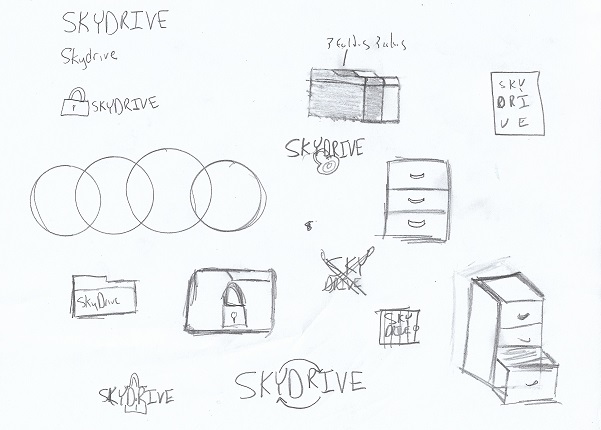 SKYDRIVE
Skydrive
3 folders 3 colors
SKYDRIVE
SKY
DRI
VE
SKYDRIVE
SKY
DRIVE
SkyDrive
SKY
DRIVE
SKYDRIVE
SKYDRIVE